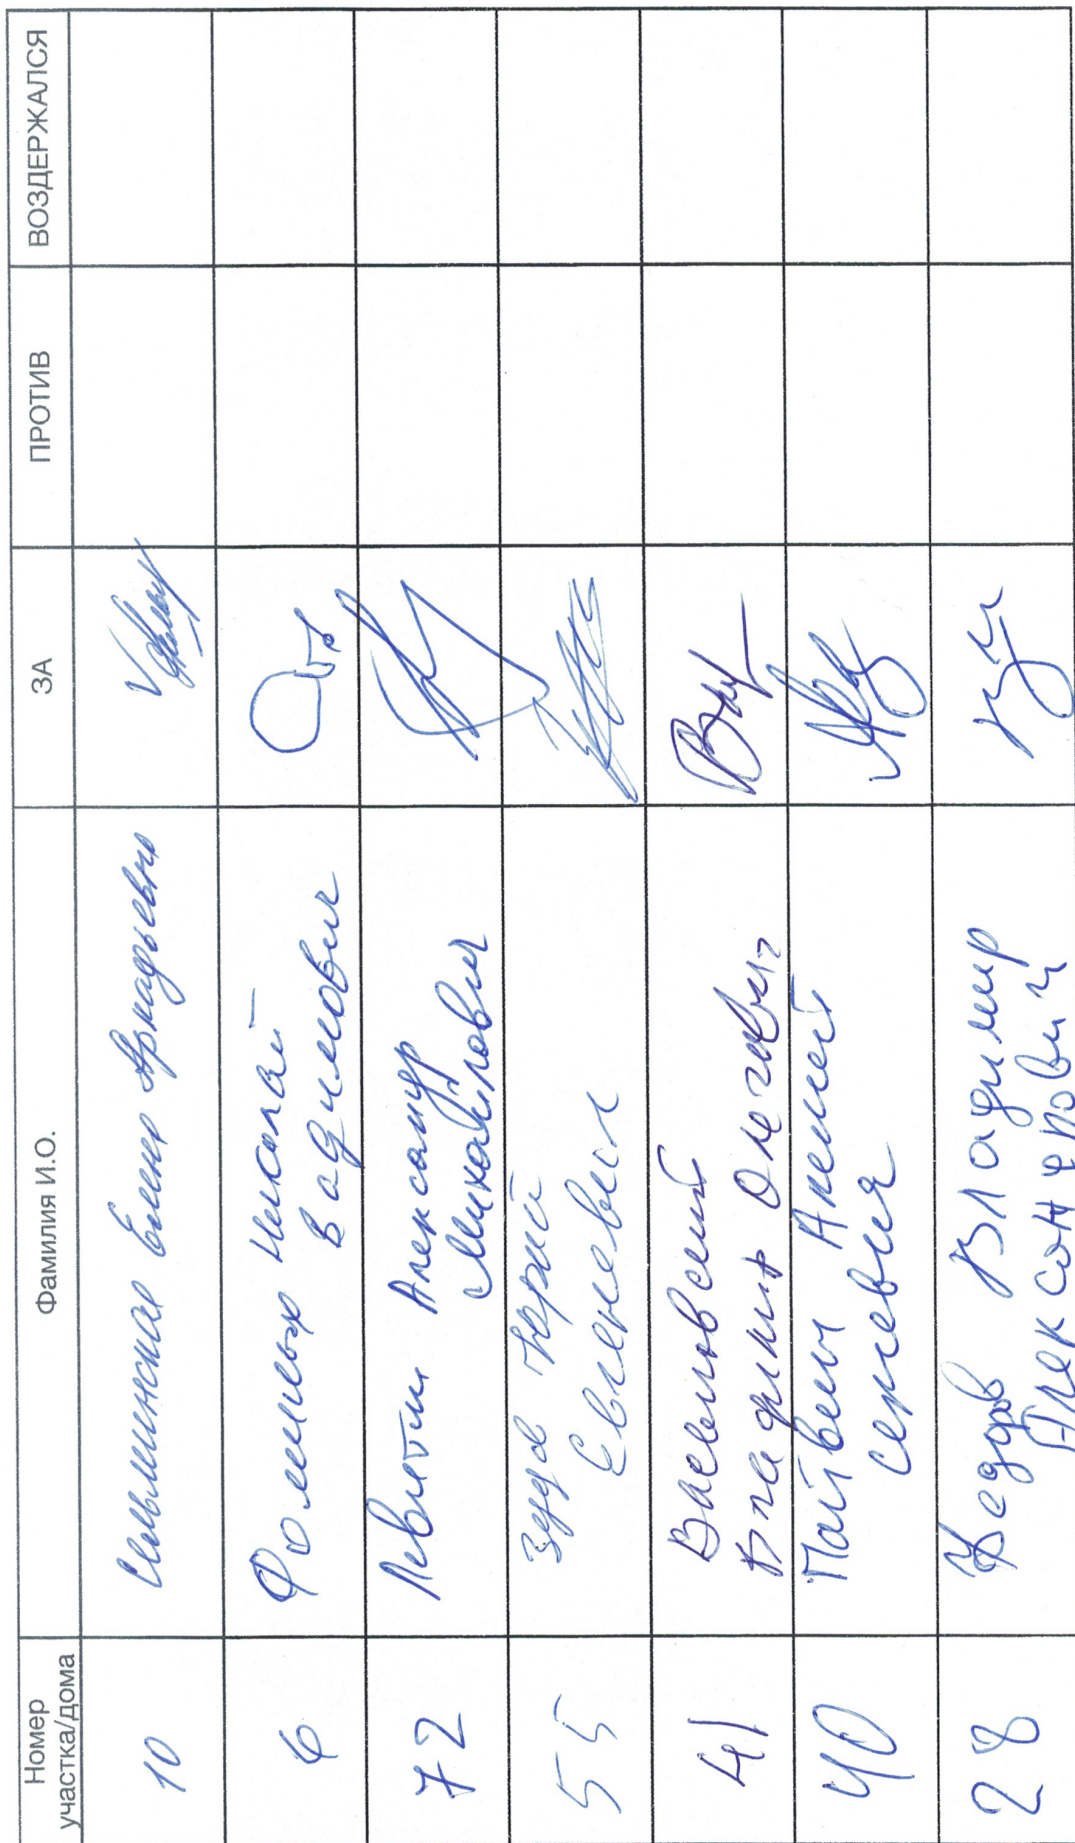 Номер участка/дома Фамилия И.О. ЗА ПРОТИВ ВОЗДЕРЖАЛСЯ
10 Елена Аркадьевна
6 Фоминых Николай
Вадимович
72 Левитин Александр
Михайлович
55 Юрий
Евгеневич
41
Владимир Олегович
40 Алексей
Сергеевич
28 Кедров Владимир
Александрович